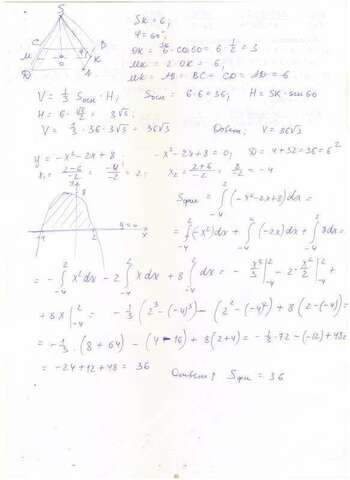 S
SK = 6;
φ = 60°;
OK = SK · cos 60 = 6 · 1/2 = 3
MK = 2 · OK = 6;
MK = AD = BC = CD = AB = 6
C
M
K
D
A
V = 1/3 Sосн · H; Sосн = 6 · 6 = 36; H = SK · sin 60
H = 6 · √3/2 = 3√3;
V = 1/3 · 36 · 3√3 = 36√3 Ответ: V = 36√3
y = -x² - 2x + 8; -x² - 2x + 8 = 0; D = 4 + 32 = 36 = 6²
x₁ = 2-6/-2 = -4/-2 = 2; x₂ = 2+6/-2 = 8/-2 = -4
Sфиг = ∫₋₄² (-x² - 2x + 8) dx =
= ∫₋₄² (-x²) dx + ∫₋₄² (-2x) dx + ∫₋₄² 8 dx =
8
y = 0
-4
2
x
= - ∫₋₄² x² dx - 2 ∫₋₄² x dx + 8 ∫₋₄² dx = - x³/3 |₋₄² - 2 · x²/2 |₋₄² +
+ 8x |₋₄² = - 1/3 (2³ - (-4)³) - (2² - (-4)²) + 8 (2 - (-4)) =
= - 1/3 · (8 + 64) - (4 - 16) + 8 (2+4) = - 1/3 · 72 - (-12) + 48 =
= -24 + 12 + 48 = 36 Ответ: Sфиг = 36